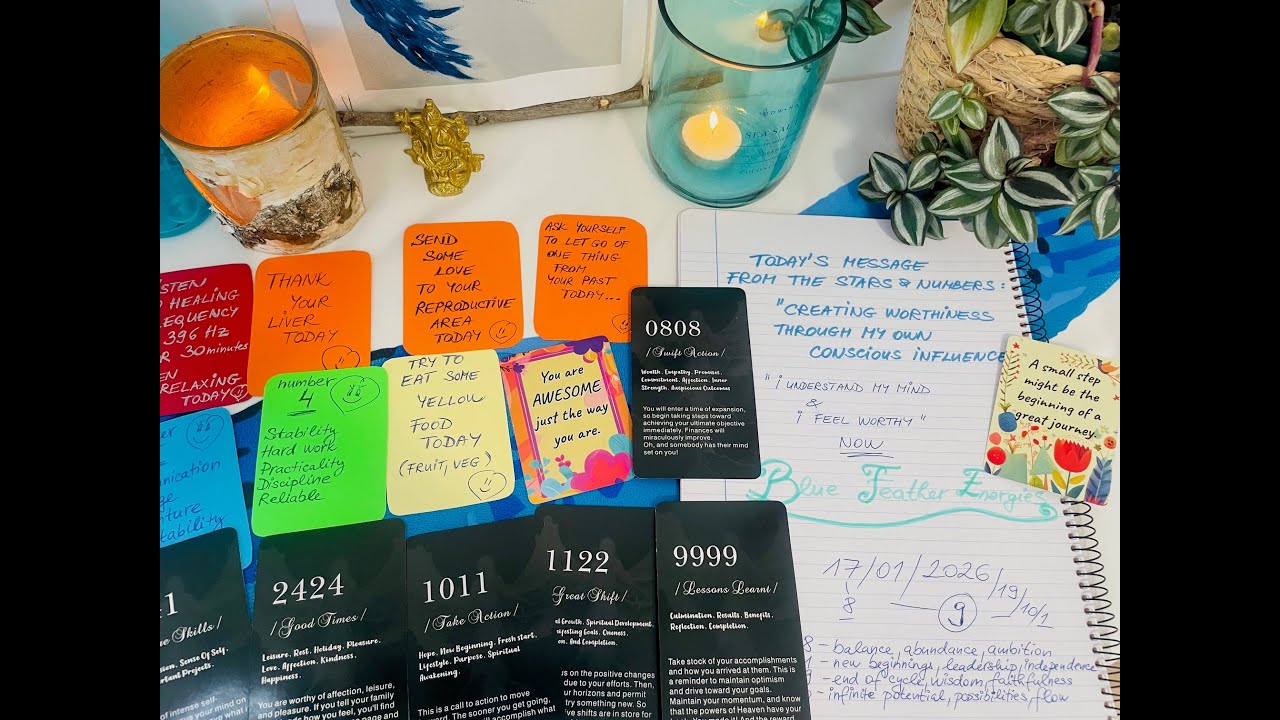 HEALING
396 Hz
30 minutes
RELAXING
TODAY
THANK
YOUR
LIVER
TODAY
SEND
SOME
LOVE
TO YOUR
REPRODUCTIVE
AREA
TODAY
ASK YOURSELF
TO LET GO OF
ONE THING
FROM
YOUR PAST
TODAY...
number
4
Stability
Hard work
Practicality
Discipline
Reliable
TRY TO
EAT SOME
YELLOW
FOOD
TODAY
(FRUIT, VEG)
You are
AWESOME
just the way
you are.
0808
/Swift Action/
Wealth. Empathy. Promises.
Commitment. Affection. Inner
Strength. Auspicious Outcomes
You will enter a time of expansion,
so begin taking steps toward
achieving your ultimate objective
immediately. Finances will
miraculously improve.
Oh, and somebody has their mind
set on you!
TODAY'S MESSAGE
FROM THE STARS & NUMBERS:
"CREATING WORTHINESS
THROUGH MY OWN
CONSCIOUS INFLUENCE
"I UNDERSTAND MY MIND
&
I FEEL WORTHY"
NOW
Blue Feather Energies
A small step
might be the
beginning of a
great journey.
SEA SAL
Skills/
Sense Of Self.
Projects.
of intense self.
your mind on
2424
/Good Times/
Leisure. Rest. Holiday. Pleasure.
Love. Affection. Kindness.
Happiness.
You are worthy of affection, leisure,
and pleasure. If you tell your family
how you feel, you'll find
1011
/Take Action/
Hope. New Beginning. Fresh start.
Lifestyle. Purpose. Spiritual
Awakening.
This is a call to action to move
forward. The sooner you get going,
will accomplish what
1122
Great Shift/
Growth. Spiritual Development.
Goals. Oneness.
And Completion.
on the positive changes
due to your efforts. Then,
your horizons and permit
try something new. So
shifts are in store for
9999
/Lessons Learnt/
Culmination. Results. Benefits.
Reflection. Completion.
Take stock of your accomplishments
and how you arrived at them. This is
a reminder to maintain optimism
and drive toward your goals.
Maintain your momentum, and know
that the powers of Heaven have your
back. You made it! And the reward
17/01/2026/19/10/1
8 9
8 - balance, abundance, ambition
1 - new beginnings, leadership, independence
9 - end of cycle, wisdom, faithfulness
- infinite potential, possibilities, flow